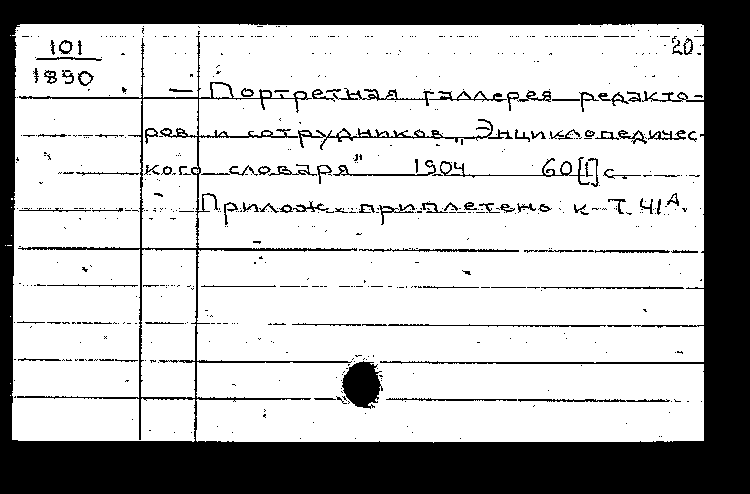 101
1890
20.
— Портретная галлерея редакто-
ров и сотрудников „Энциклопедичес-
кого словаря" 1904. 60[I]с.
Прилож. приплетено к Т. 41А.